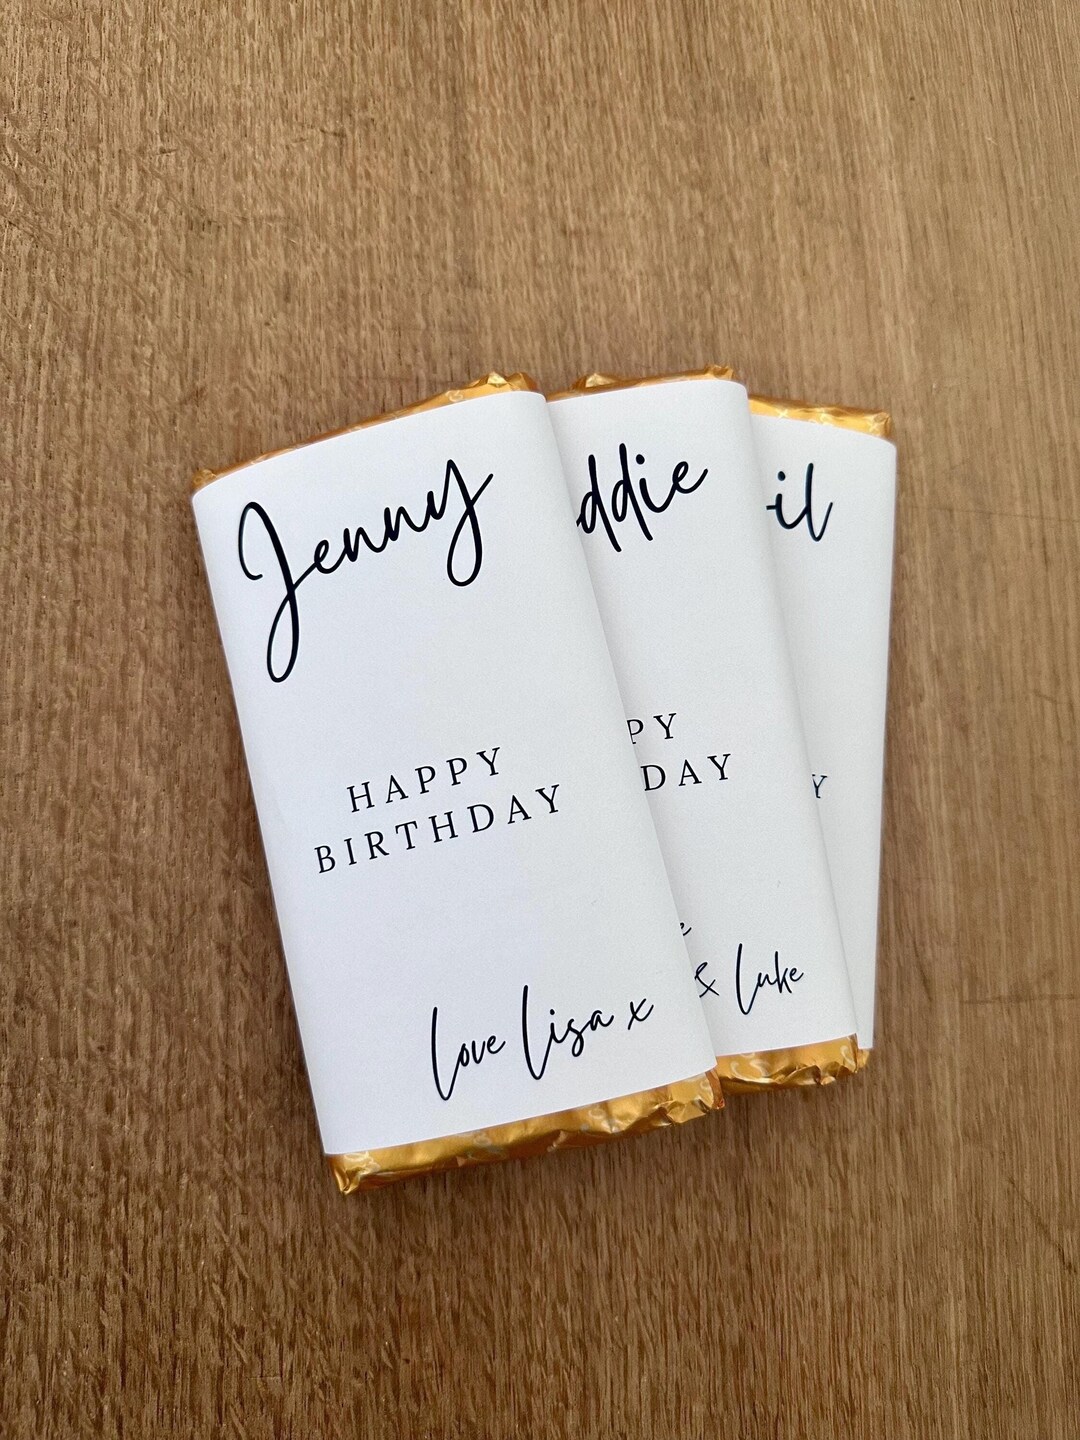 Jenny
HAPPY
BIRTHDAY
love Lisa x
ddie
PY
DAY
e
& Luke
il
Y